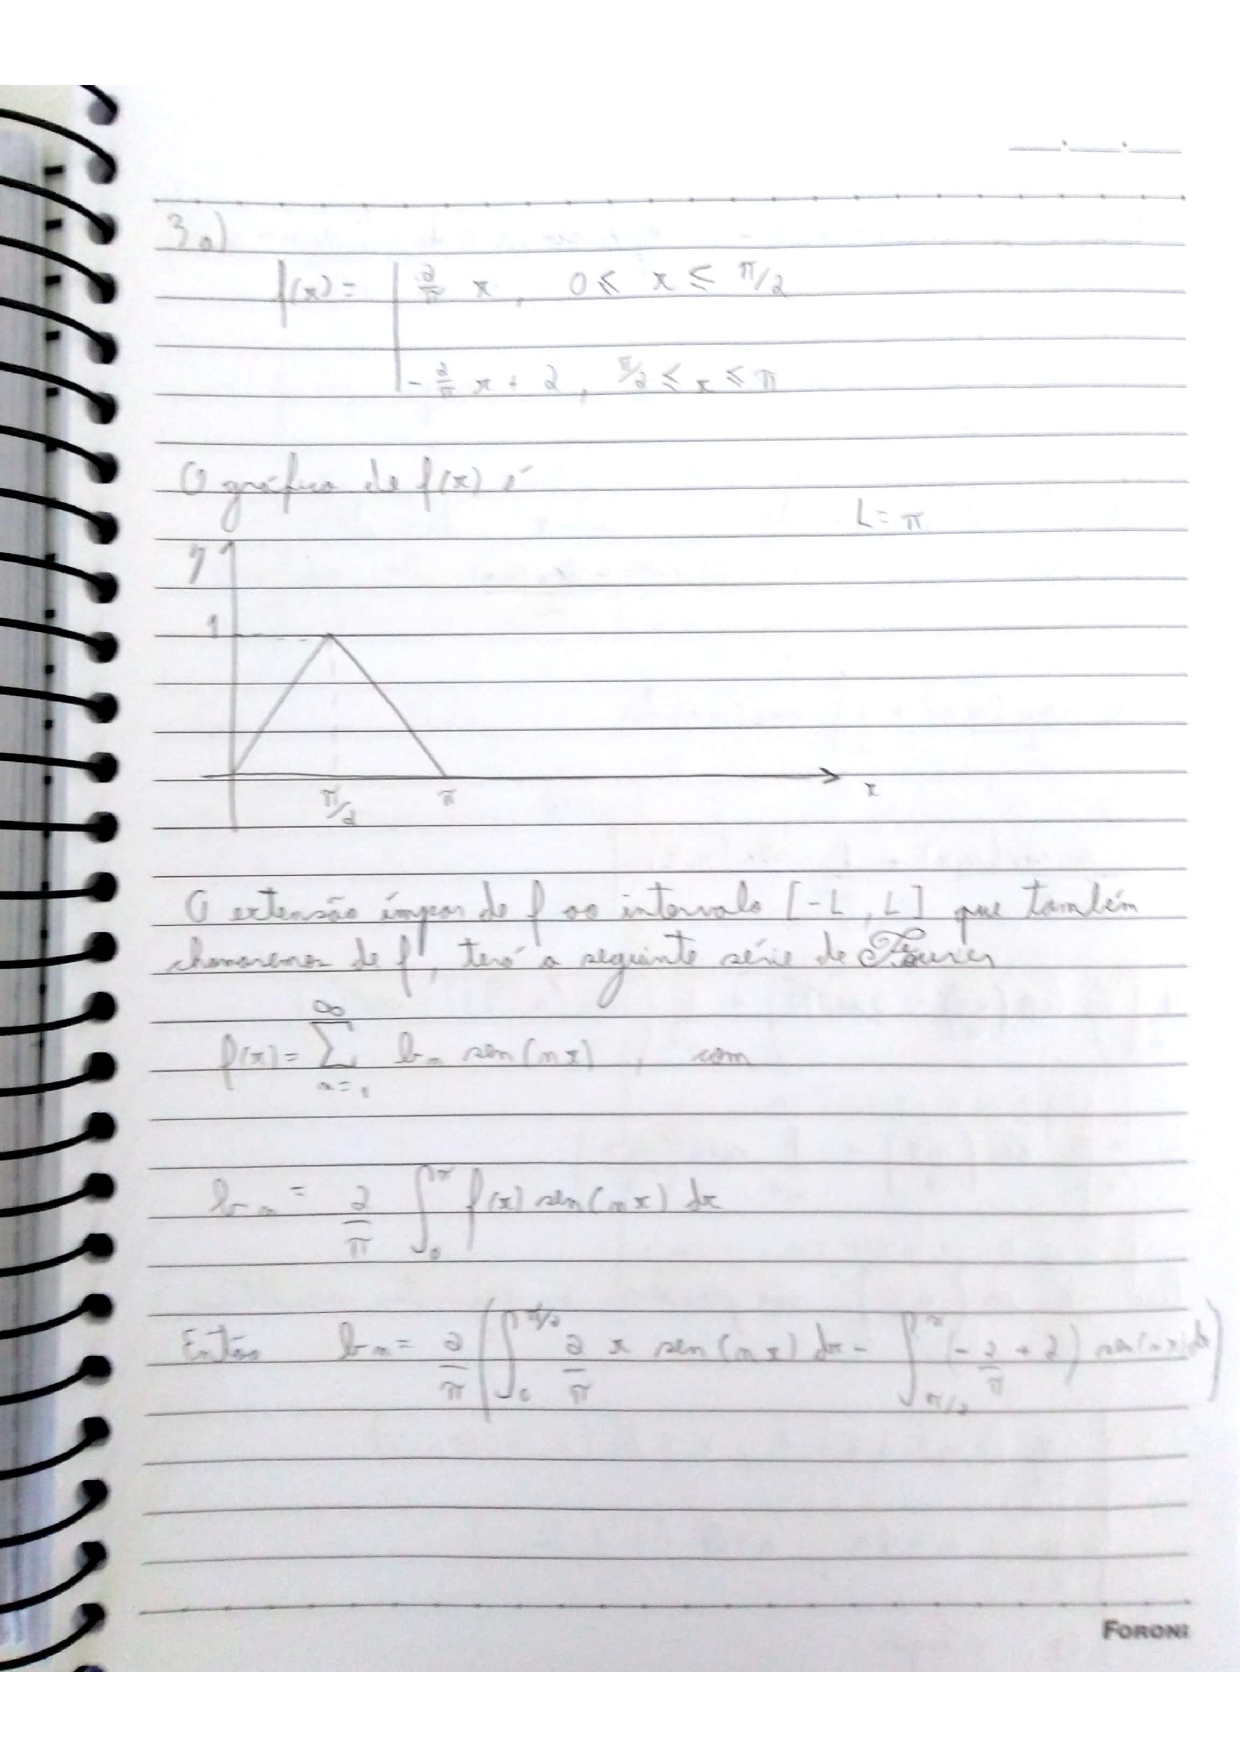 3a)
f(x) = 2/π x, 0 ≤ x ≤ π/2
- 2/π x + 2, π/2 ≤ x ≤ π
O gráfico de f(x) é
L = π
y
1
π/2 π x
A extensão ímpar de f ao intervalo [-L, L] que também
chamaremos de f, terá a seguinte série de Fourier
f(x) = ∑_{n=1}^{∞} b_n sen(nx), com
b_n = 2/π ∫_0^π f(x) sen(nx) dx
Então b_n = 2/π (∫_0^{π/2} 2/π x sen(nx) dx - ∫_{π/2}^π (-2/π + 2) sen(nx) dx)
FORONI